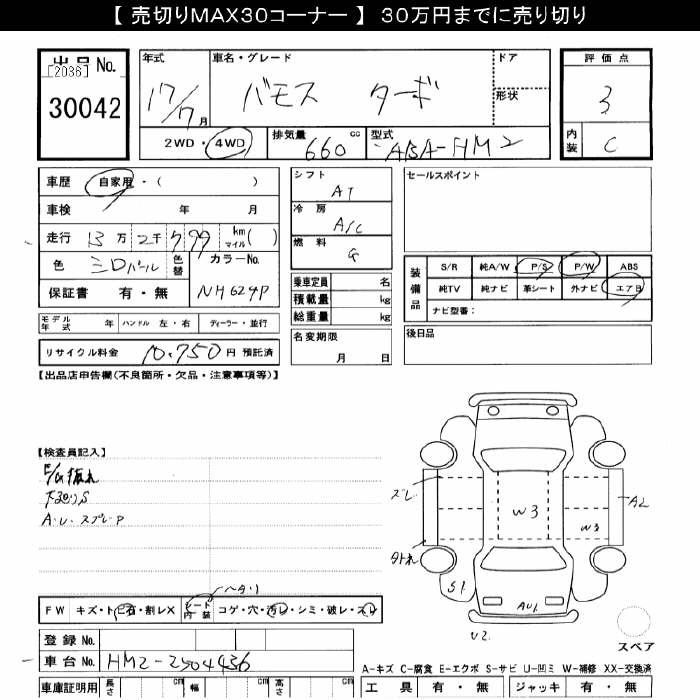 【 売切りMAX30コーナー 】 30万円までに売り切り
出品No.
[2036]
30042
年式
17/7月
車名・グレード
バモス ターボ
ドア
形状
2WD・4WD
排気量 cc
660
型式
ABA-HM2
評価点
3
内装
C
車歴 自家用・( )
車検 年 月
走行 13万2千7 99 km マイル( )
色
色替
カラーNo.
NH624P
保証書 有・無
シフト
AT
冷房
A/C
燃料
G
乗車定員 名
積載量 kg
総重量 kg
名変期限
月 日
セールスポイント
装備品
S/R 純A/W P/S P/W ABS
純TV 純ナビ 革シート 外ナビ エアB
ナビ型番:
後日品
モデル年式 年 ハンドル 左・右 ディーラー・並行
リサイクル料金 10.750円 預託済
【出品店申告欄(不良箇所・欠品・注意事項等)】
【検査員記入】
下廻りS
A・U・スプレーP
ズレ
W3
W3
A2
S1
AU1
U2
FW キズ・ト ビ石・割レX シート内装 コゲ・穴・汚レ・シミ・破レ・スレ
登録No.
車台No. HM2-2504436
車庫証明用 長さ cm 幅 cm 高さ cm
スペア
A-キズ C-腐食 E-エクボ S-サビ U-凹ミ W-補修 XX-交換済
工具 有・無 ジャッキ 有・無